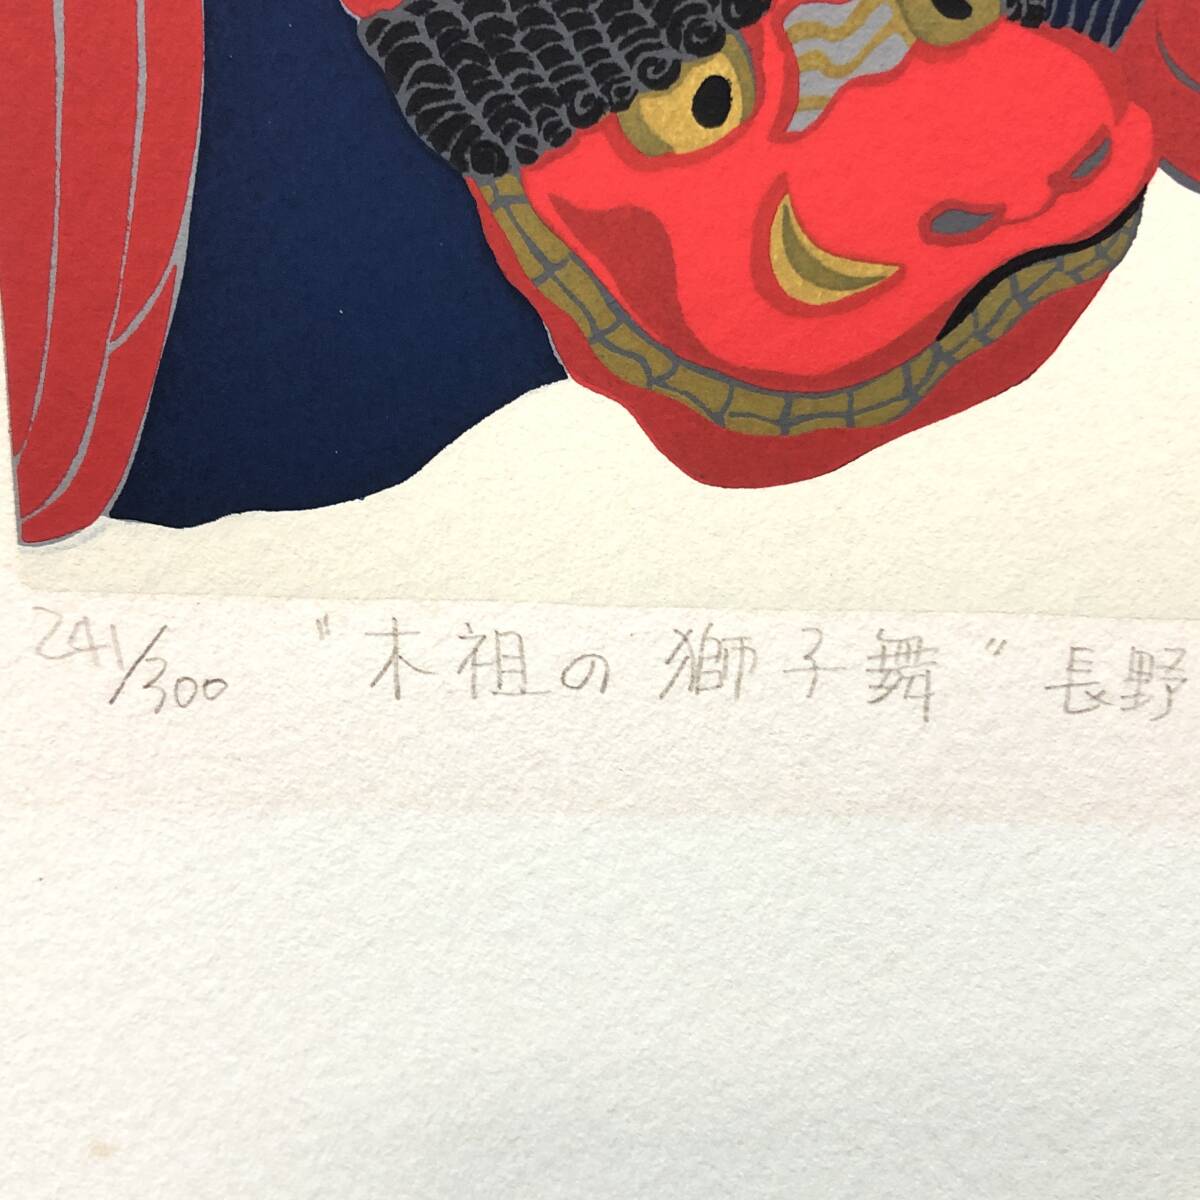 241/300 "木祖の獅子舞" 長野